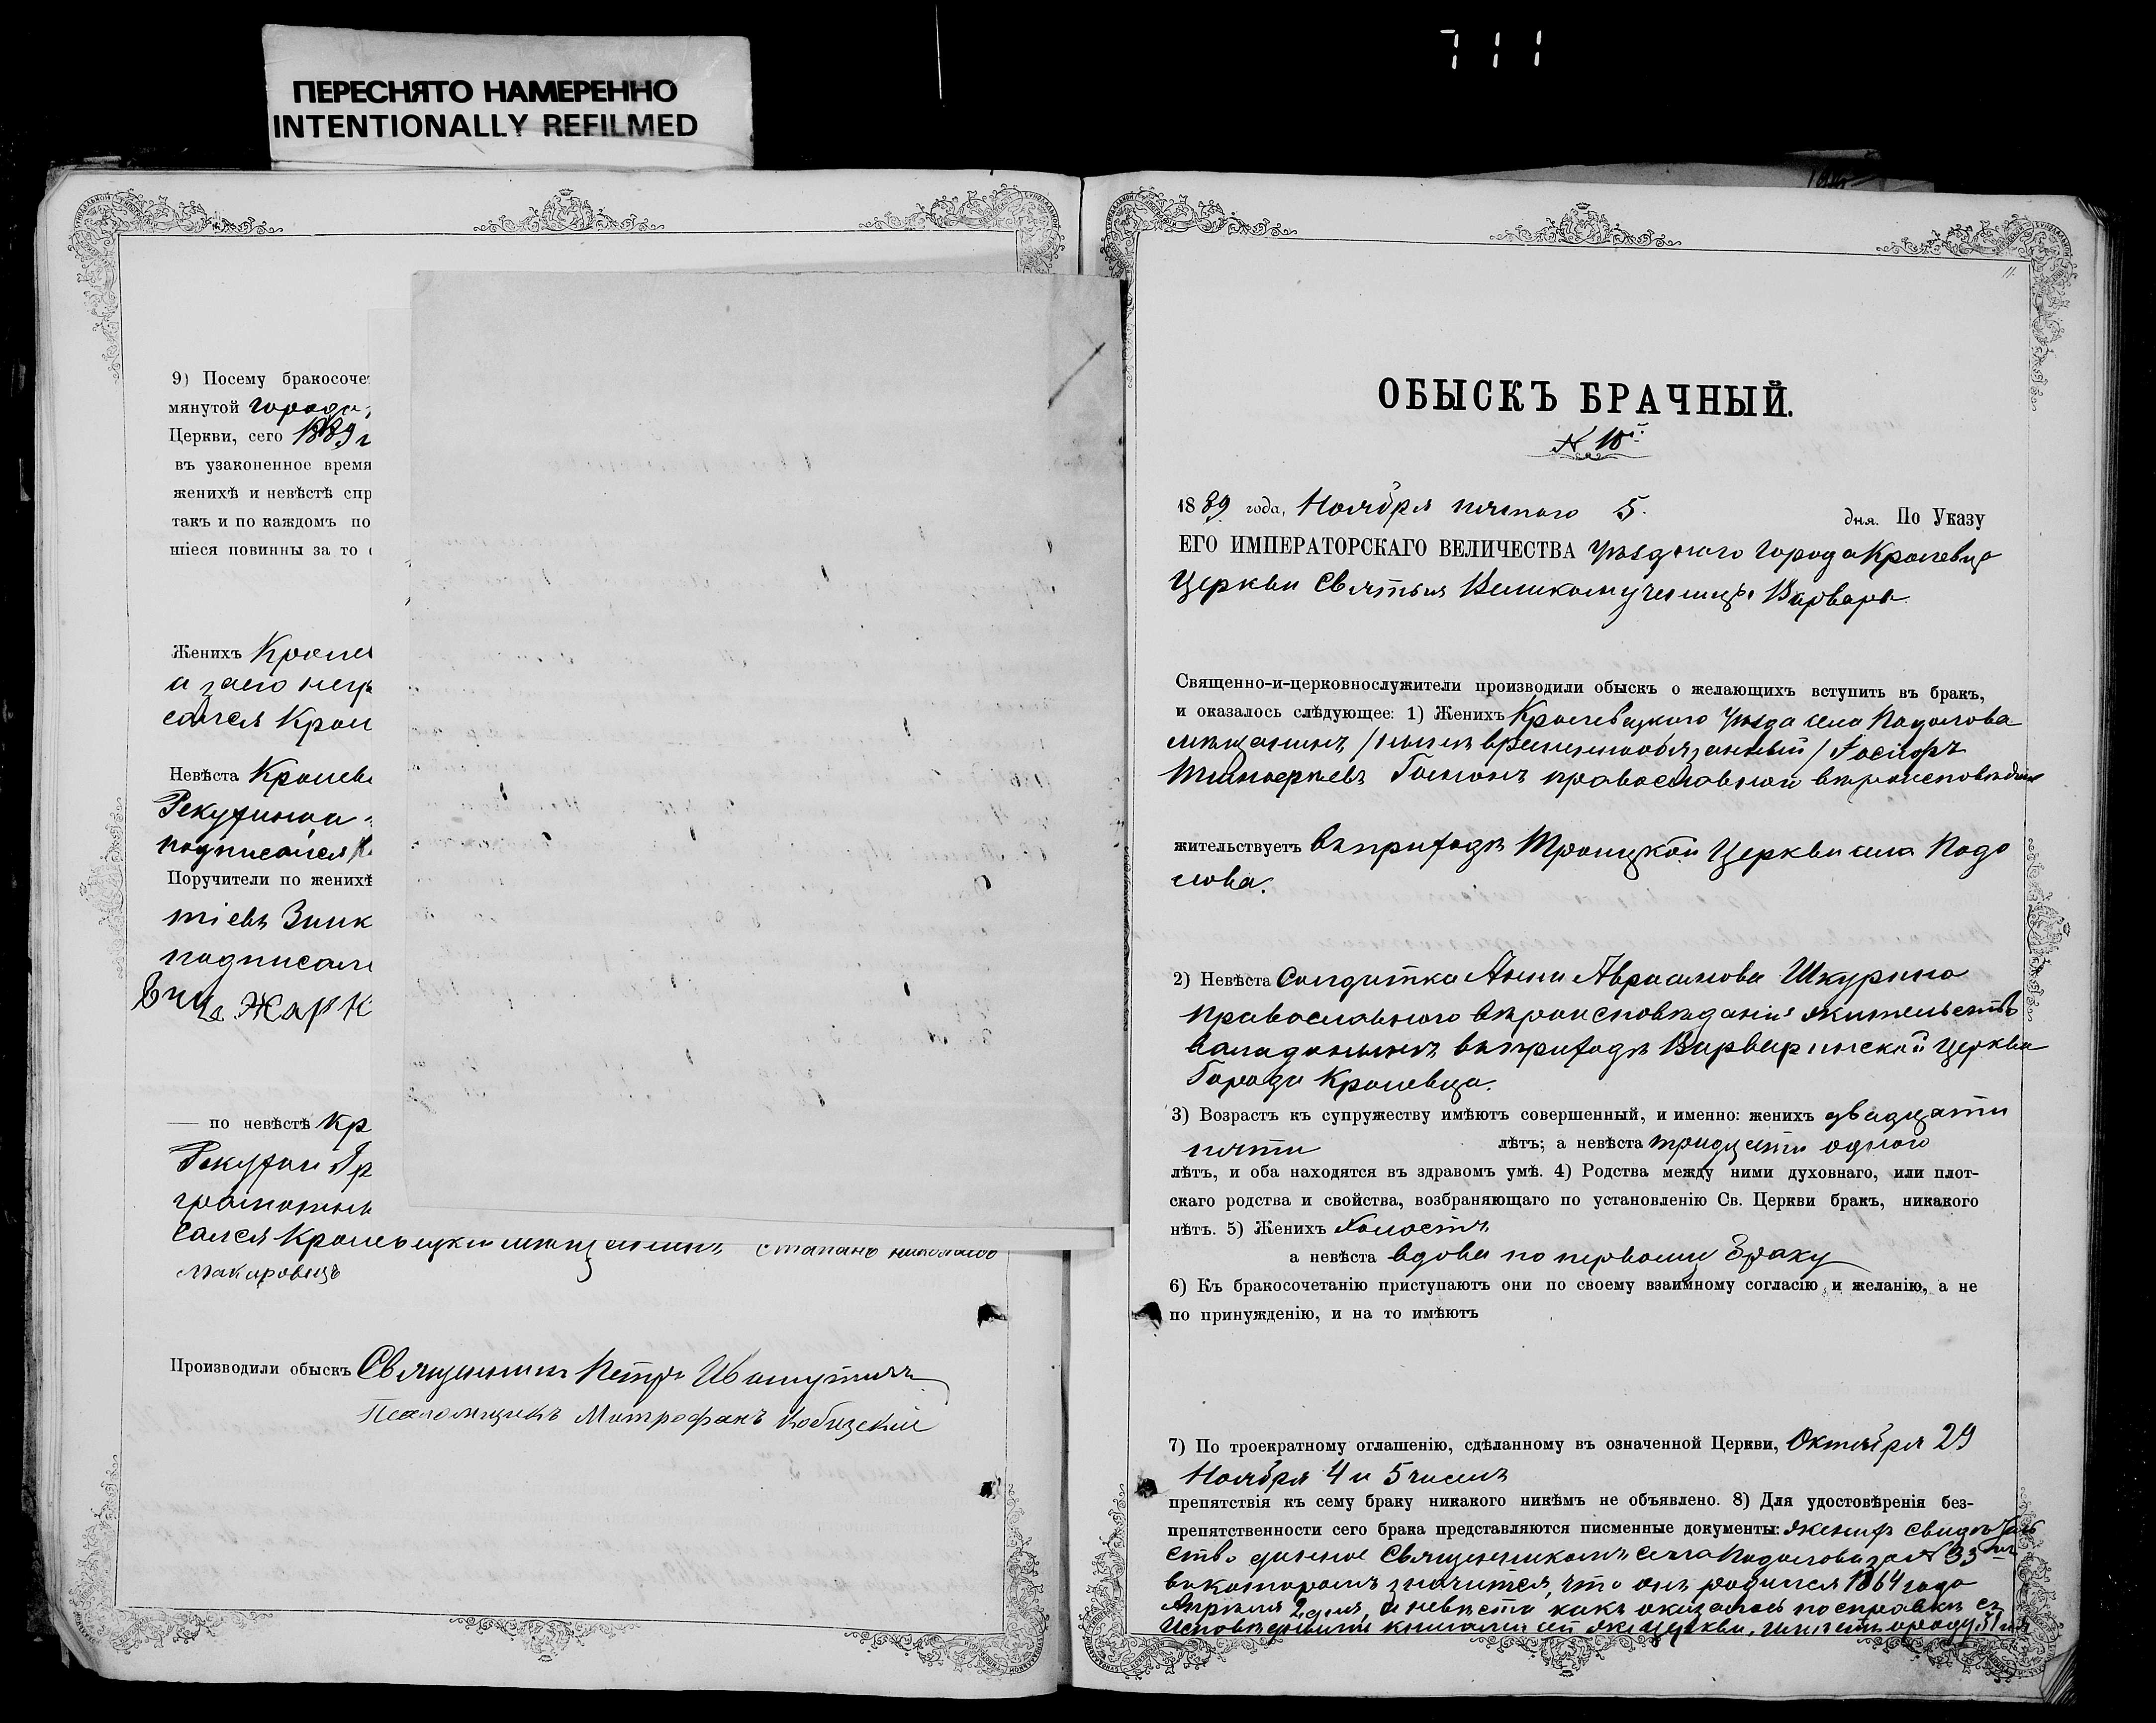 711
ПЕРЕСНЯТО НАМЕРЕННО
INTENTIONALLY REFILMED
9) Посему бракосоче
мянутой города
Церкви, сего 1889 г
въ узаконенное время
женихѣ и невѣстѣ спр
такъ и по каждомъ по
шіеся повинны за то
Женихъ Кролев
а за его негр
сался Крол
Невѣста Кролев
подписался
Поручители по женихѣ
тіевъ Зинк
подписал
Жарк
— по невѣстѣ Кр
грамотны
сался Кролевецкій мѣщанинъ Стапанъ Николаевъ
Макаровецъ
Производили обыскъ Священникъ Петръ Ивашутичъ
Псаломщикъ Митрофанъ Кобизскій
11.
ОБЫСКЪ БРАЧНЫЙ.
N 10й
1889 года, Ноября пятого 5. дня. По Указу
ЕГО ИМПЕРАТОРСКАГО ВЕЛИЧЕСТВА Уѣздного Города Кролевца
Церкви Святыя Великомученицы Варвары
Священно-и-церковнослужители производили обыскъ о желающихъ вступить въ бракъ,
и оказалось слѣдующее: 1) Женихъ Кролевецкого Уѣзда села Подолова
мѣщанинъ /нынѣ временнообязанный/
православной вѣроисповѣданія
жительствуетъ въ приходѣ Троицкой Церкви села Подо
лова.
2) Невѣста Солдатка Анна Авраамова Шкурина
Православного вѣроисповѣданія жительств
въ приходѣ Варваринской Церкви
Города Кролевца.
3) Возрастъ къ супружеству имѣютъ совершенный, и именно: женихъ двадцати
пяти лѣтъ; а невѣста тридцати одного
лѣтъ, и оба находятся въ здравомъ умѣ. 4) Родства между ними духовнаго, или плот-
скаго родства и свойства, возбраняющаго по установленію Св. Церкви бракъ, никакого
нѣтъ. 5) Женихъ холостъ
а невѣста вдова по первому браку
6) Къ бракосочетанію приступаютъ они по своему взаимному согласію и желанію, а не
по принужденію, и на то имѣютъ
7) По троекратному оглашенію, сдѣланному въ означенной Церкви, Октября 29
Ноября 4 и 5 числъ
препятствія къ сему браку никакого никѣмъ не объявлено. 8) Для удостовѣренія без-
препятственности сего брака представляются писменные документы: женихъ свидѣтель
ство данное Священникомъ села Подолова за N 33мъ
въ которомъ значится, что онъ родился 1864 года
Апрѣля 2 дня, а невѣста какъ оказалось по справкѣ съ
Исповѣдными книгами сей же церкви, имѣетъ отроду 31 годъ